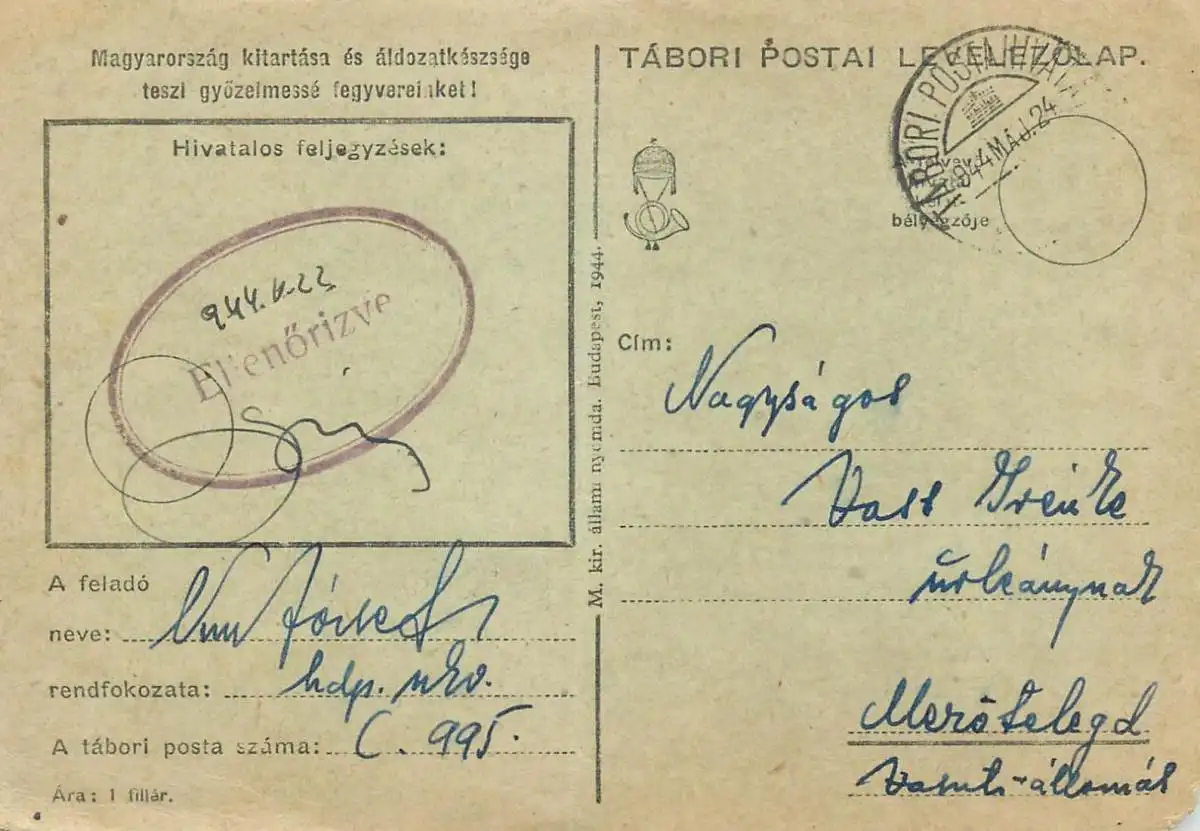 Magyarország kitartása és áldozatkészsége
teszi győzelmessé fegyvereinket!
Hivatalos feljegyzések:
944. V. 22
Ellenőrizve
A feladó
neve: József
rendfokozata: hdp. őrv.
A tábori posta száma: C. 995.
Ára: 1 fillér.
M. kir. állami nyomda. Budapest, 1944.
TÁBORI POSTAI LEVELEZŐLAP.
TÁBORI POSTAHIVATAL
944 MÁJ. 24
bélyegzője
Cím:
Nagyságos
Vass Irénke
úrleánynak
Mezőtelegd
Vasuti-állomás